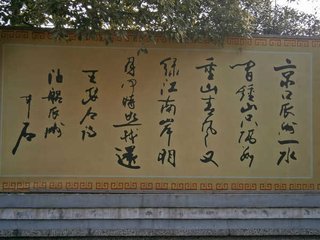 京口瓜洲一水
间钟山只隔数
重山春风又
绿江南岸明
月何时照我還
王安石诗
泊船瓜洲
中石